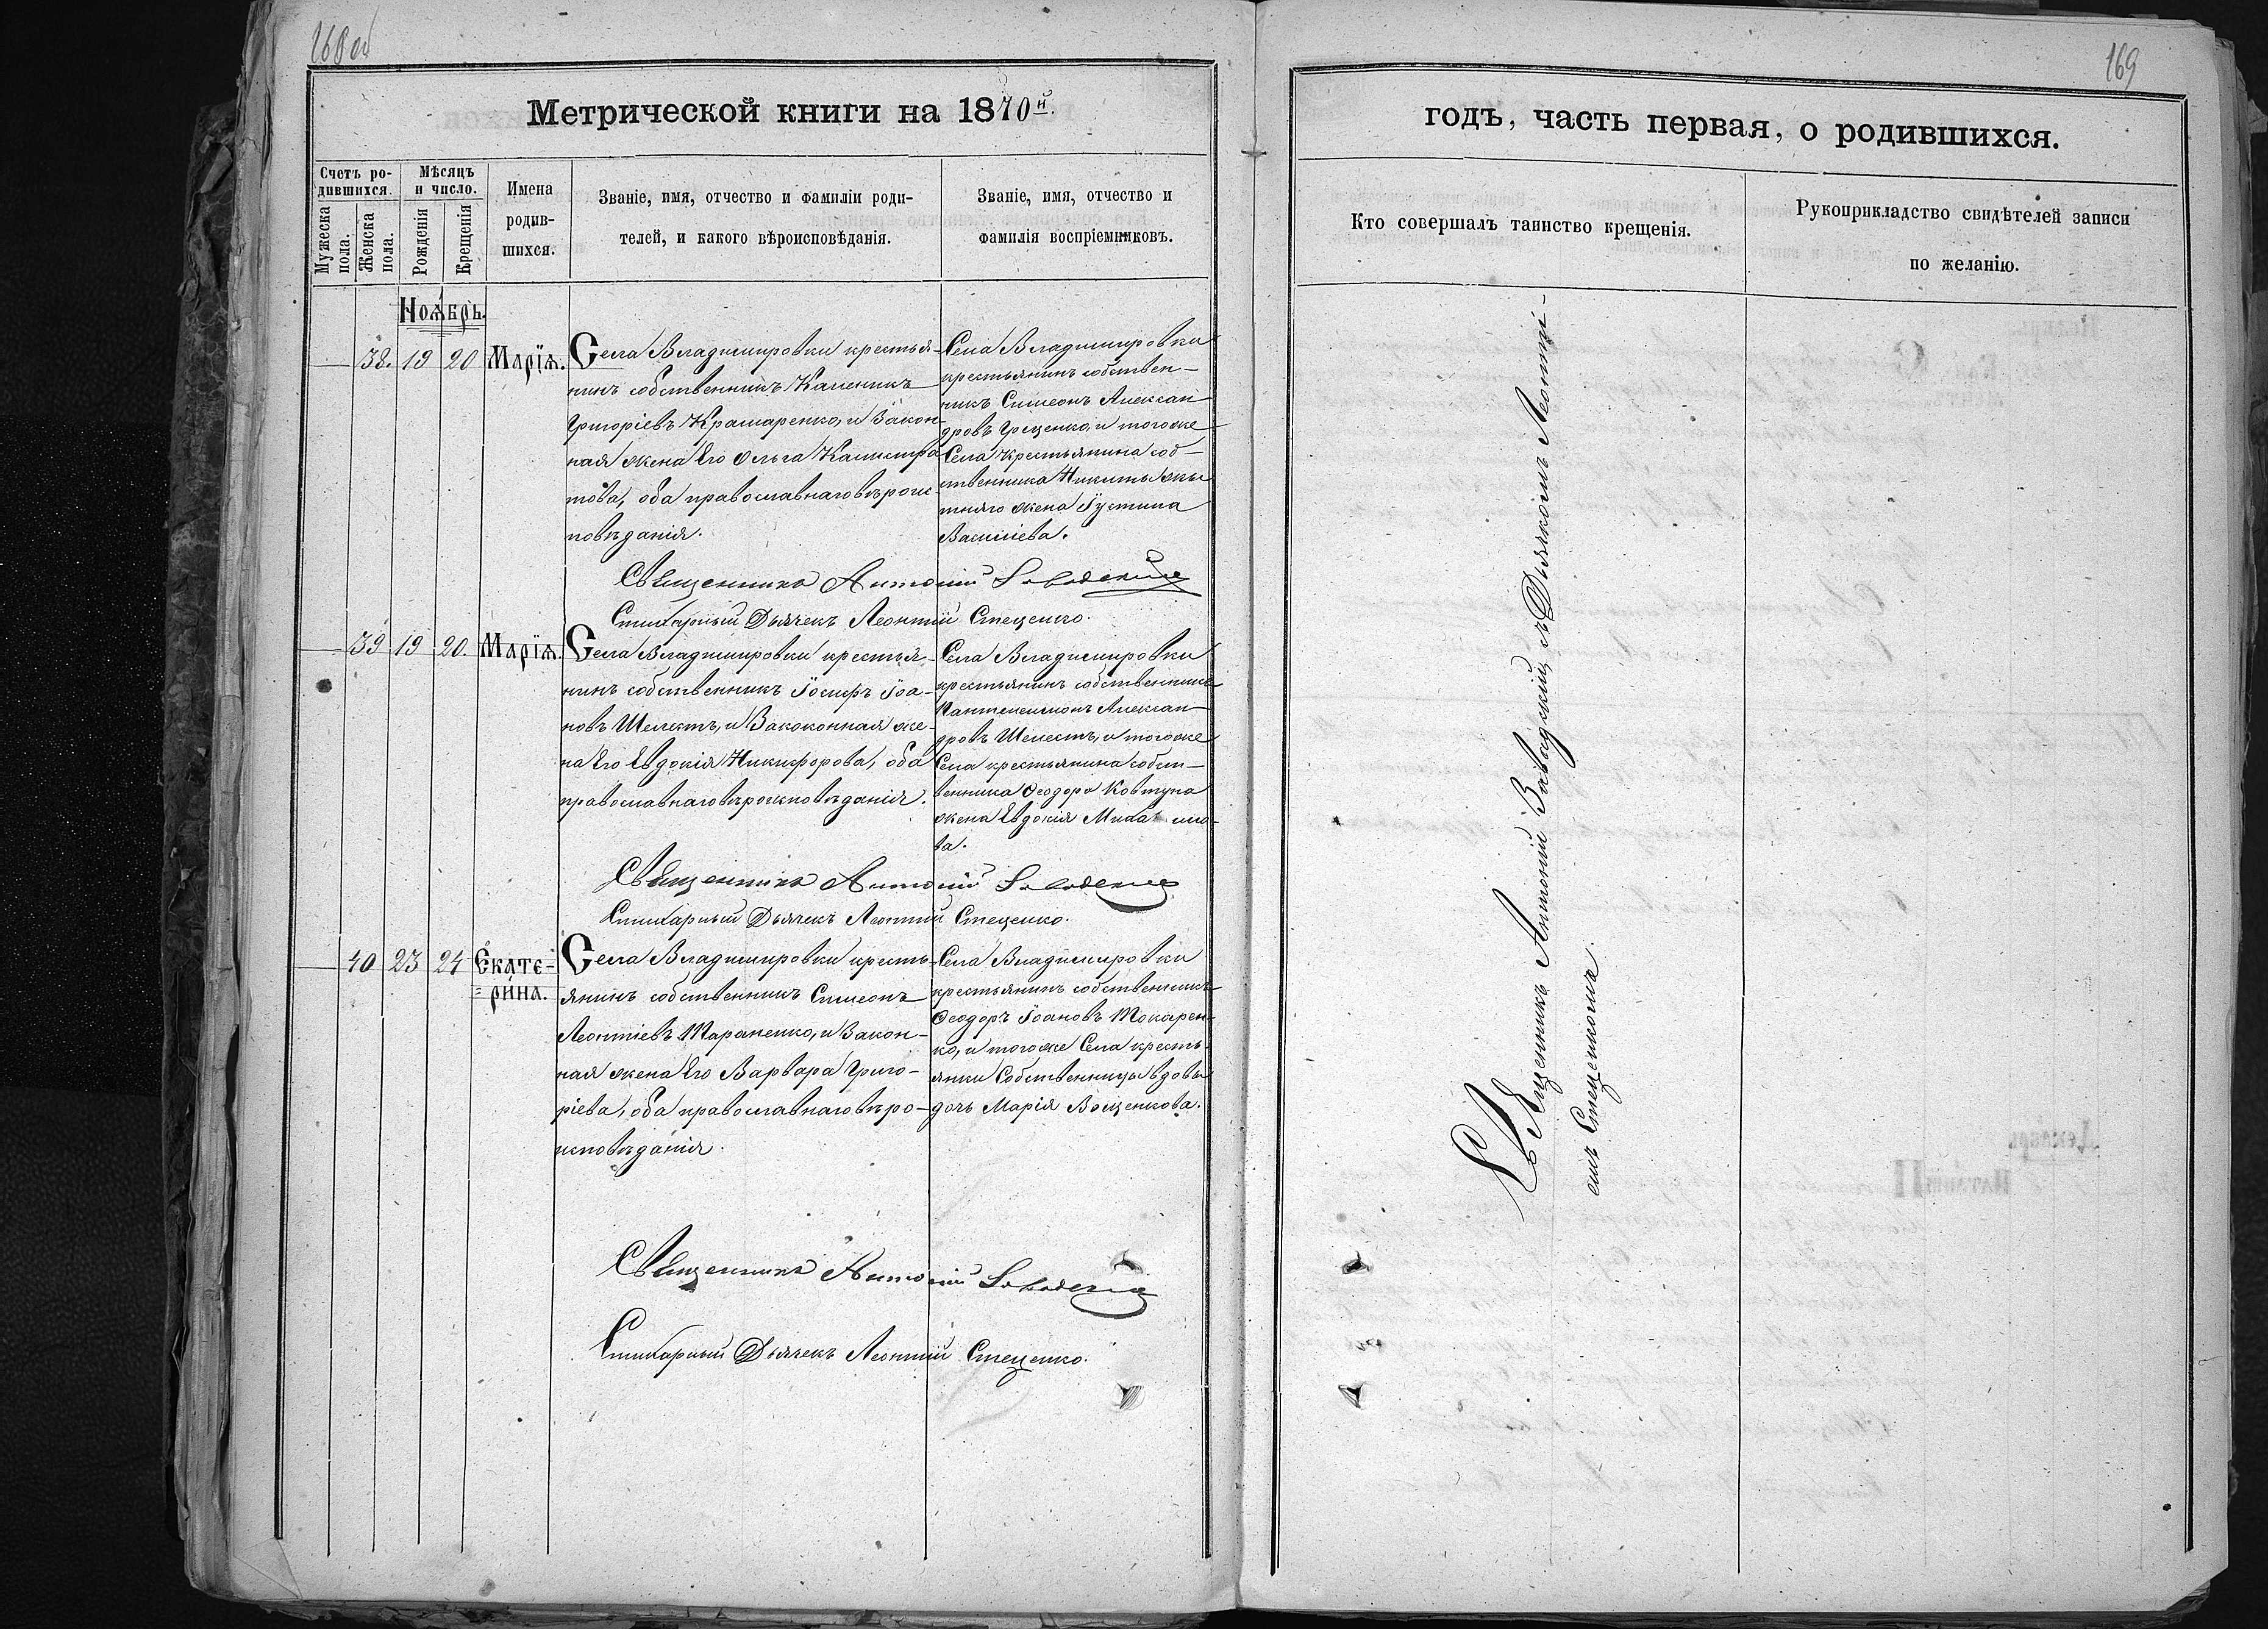 168 об
Метрической книги на 1870й.
Счетъ ро-
дившихся.
Мужеска
пола.
Женска
пола.
Мѣсяцъ
и число.
Рожденія
Крещенія
Имена
родив-
шихся.
Званіе, имя, отчество и фамиліи роди-
телей, и какого вѣроисповѣданія.
Званіе, имя, отчество и
фамилія воспріемниковъ.
Ноябрь.
38. 19 20 Марія.
Села Владимировки крестья-
нинъ собственникъ Каленикъ
Григоріевъ Крамаренко, и Закон-
ная жена Его Ольга Калистра
това, оба православнаго вѣроис-
повѣданія.
Села Владимировки
крестьянинъ собствен-
никъ Симеонъ Алексан
дровъ Гуценко, и того же
Села крестьянина соб-
ственника Никиты
жена Іустина
Василіева.
Священникъ Антоній Завадскій
Стихарный Дьячекъ Леонтій Стеценко.
39 19 20. Марія.
Села Владимировки крестья-
нинъ собственникъ Іосифъ Іоа-
новъ Шелестъ, и Закоконная же-
на Его Евдокія Никифорова, оба
православнаго вѣроисповѣданія.
Села Владимировки
крестьянинъ собственникъ
Пантелеимонъ Алексан
дровъ Шелестъ, и того же
Села крестьянина собст-
венника Феодора Ковтуна
жена Евдокія Михаило-
ва.
Священникъ Антоній Завадскій
Стихарный Дьячекъ Леонтій Стеценко.
40 23 24 Екате-
рина.
Села Владимировки кресть-
янинъ собственникъ Симеонъ
Леонтіевъ Тараненко, и Закон-
ная жена Его Варвара Григо-
ріева, оба православнаго вѣро-
исповѣданія.
Села Владимировки
крестьянинъ собственникъ
Феодоръ Іоановъ Токарен-
ко, и того же Села кресть-
янки Собственницы вдовы
дочь Марія Воценкова.
Священникъ Антоній Завадскій
Стихарный Дьячекъ Леонтій Стеценко.
169
годъ, часть первая, о родившихся.
Кто совершалъ таинство крещенія.
Рукоприкладство свидѣтелей записи
по желанію.
Священникъ Антоній Завадскій съ Дьячкомъ Леонті-
емъ Стеценкомъ.